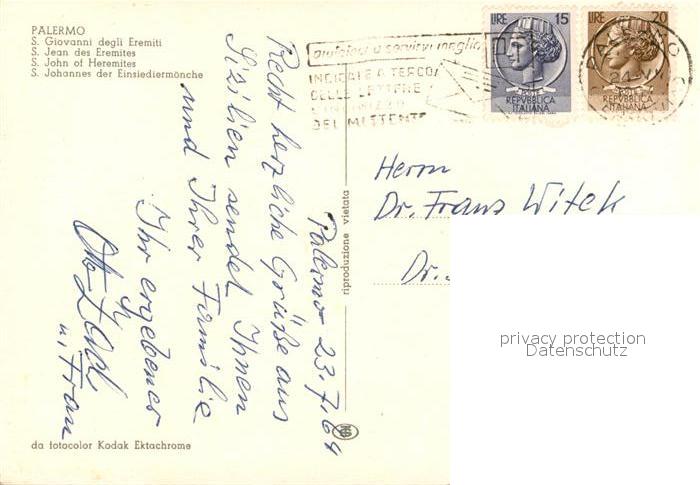 PALERMO
S. Giovanni degli Eremiti
S. Jean des Eremites
S. John of Heremites
S. Johannes der Einsiedermönche
aiutateci a servirvi meglio
INDICATE A TERGO
DELLE LETTERE
L'INDIRIZZO
DEL MITTENTE
LIRE 15
POSTE
REPVBBLICA
ITALIANA
LIRE 20
POSTE
REPVBBLICA
ITALIANA
PALERMO
24-VII
Palermo 23.7.64
Recht herzliche Grüße aus
Sizilien sendet Ihnen
und Ihrer Familie
Ihr ergebener
u. Frau
riproduzione vietata
Herrn
Dr. Franz Witek
Dr.
privacy protection
Datenschutz
da fotocolor Kodak Ektachrome